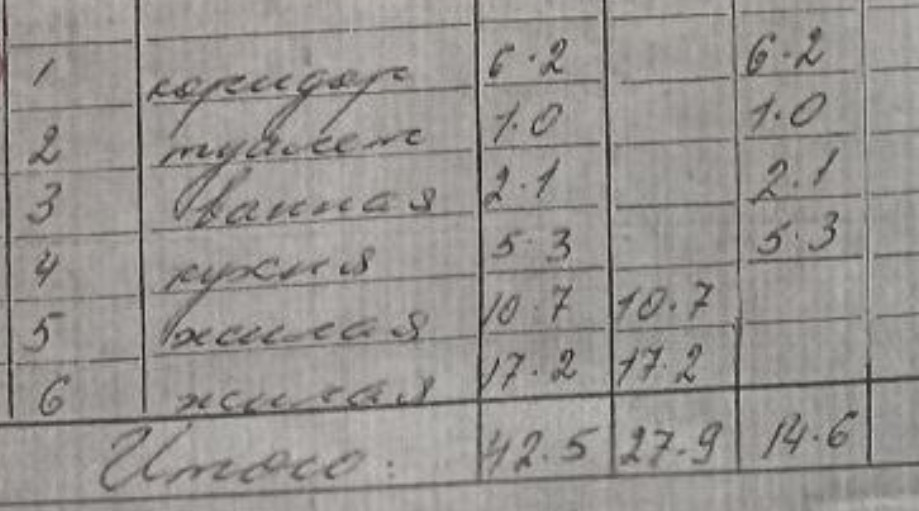 1 коридор 6.2 6.2
2 туалет 1.0 1.0
3 ванная 2.1 2.1
4 кухня 5.3 5.3
5 жилая 10.7 10.7
6 жилая 17.2 17.2
Итого: 42.5 27.9 14.6